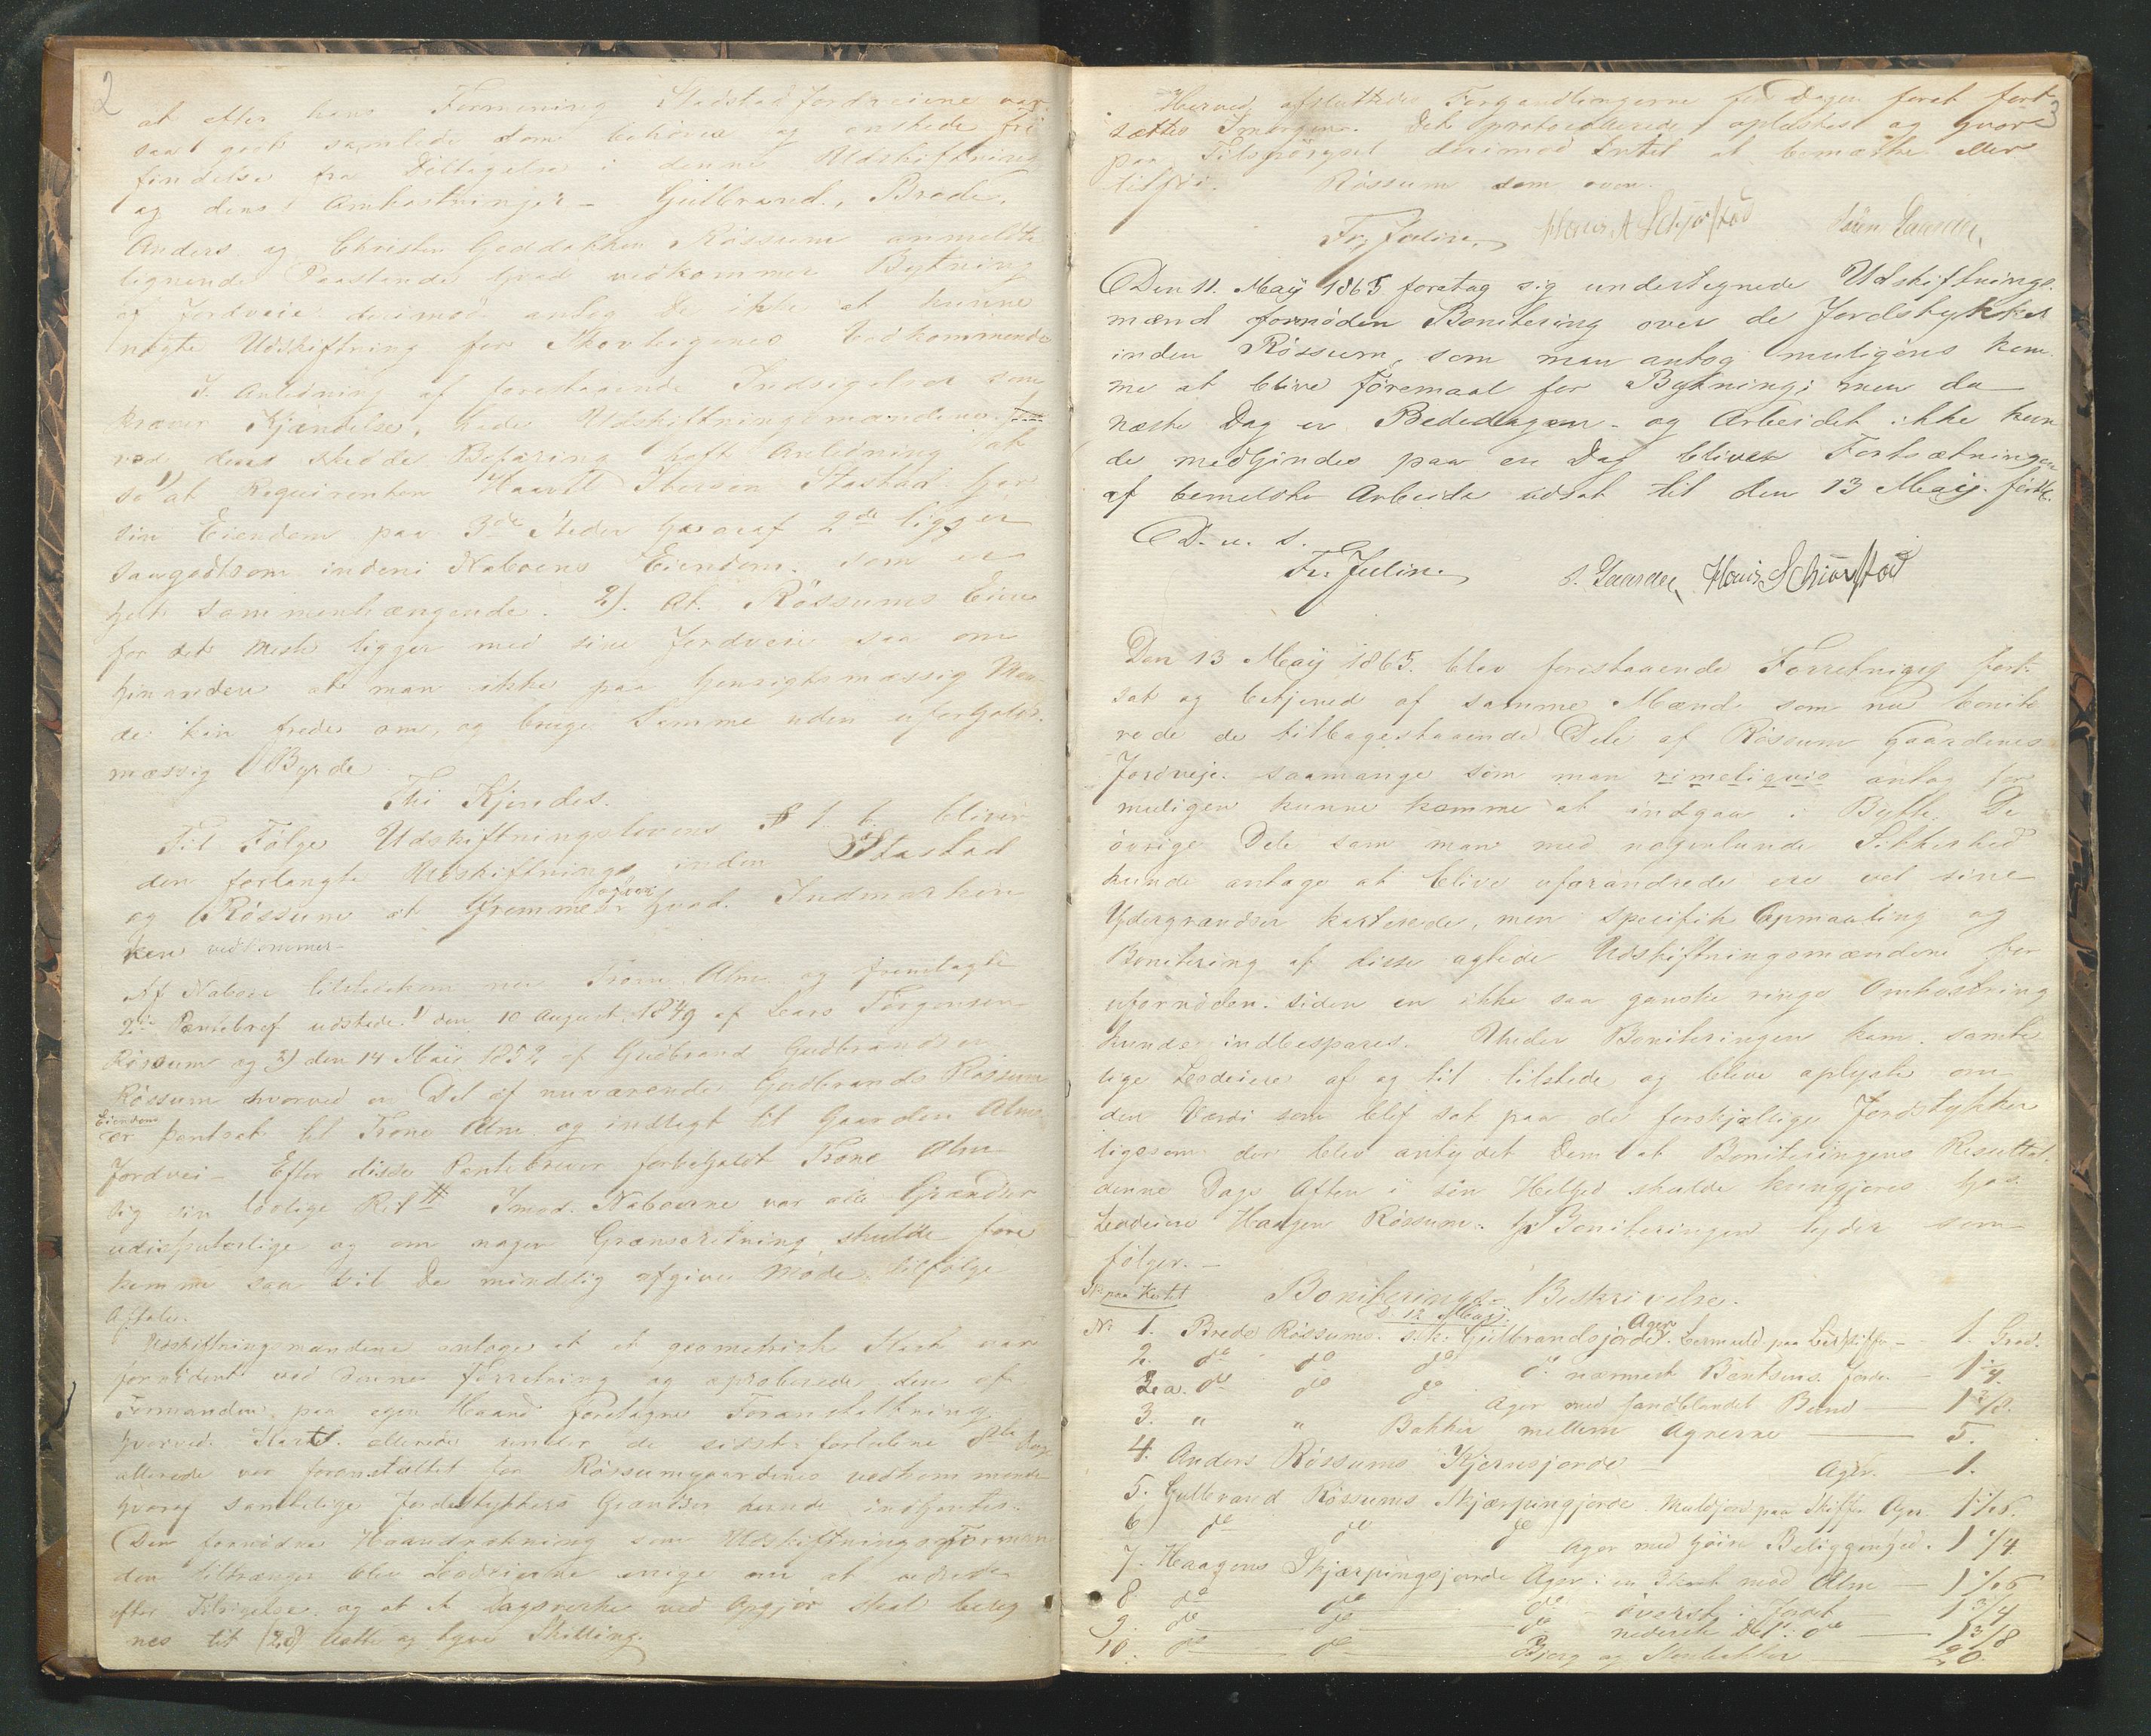 2
at efter hans Formening Stadstad Jordveiene var
saa godt samlede som behøves og ønskede fri
findelse fra Deltagelse i denne Udskiftning
og dens Omkostninger - Gulbrand, Brede,
Anders og Christen Goddakken Røssum anmeldte
lignende Paastande hvad vedkommer Bytning
af Jordveie derimod antog De ikke at kunne
nægte Udskiftning for Skovteigenes Vedkommende
I Anledning af forestaaende Indsigelser som
kræver Kjændelse, havde Udskiftningsmændene
ved deres skedde Befaring haft Anledning at
se 1) at Reqvirenten Haavel Iversen Stastad har
sin Eiendom paa 3de Steder hvoraf 2de ligger
saagodtsom indeni Naboens Eiendom, som er
helt sammenhængende. 2). At Røssums Eiere
for det meste ligger med sine Jordveie saa om
hinanden at man ikke paa hensigtsmæssig Maa-
de kan frede om, og bruge Samme uden uforholds-
mæssig Byrde
Thi Kjendes.
Til Følge Udskiftningslovens § 1. b. bliver
den forlangte Udskiftning inden Stastad
og Røssum at fremme hvad Indmarken
ken vedkommer
Af Naboer tilstedekom nu Trone Alm og fremlagde
2de Pantebref udstedt 1) den 10 August 1849 af Lars Jørgensen
Røssum og 2) den 14 Mai 1852 af Gudbrand Gudbrandsen
Røssum hvorved en Del af nuværende Gudbrands Røssum
Eiendom
er pantsat til Trone Alm og indlagt til Gaarden Alms
Jordvei - Efter disse Pantebrever forbeholdt Trone Alm
sig sin lovlige Ret Imod Naboerne var alle Grændser
udisputerlige og om nogen Grænseretning skulde fore
komme saa vil De mindelig afgives Møde tilfølge
Aftale.
Udskiftningsmændene antoge at et geometrisk Kart var
fornødent ved denne Forretning og aproberede den af
Formanden paa egen Haand foretagne Foranstaltning
hvorved Kart allerede under de sidst forløbene 8te Dage
allerede var foranstaltet for Røssumgaardenes vedkommende
hvoraf samtlige Jordstykkers Grændser kunde indhentes.
Den fornødne Haandrækning som Udskiftningsforman
den tiltrænger blev Lodeierne enige om at udrede
efter Tilsigelse og at et Dagsverke ved Opgjør skal bereg
nes til (28) otte og tyve Skilling.
3
Herved afsluttedes Forhandlingerne for Dagen foret fort
sættes Imorgen. Det protocollerede oplæstes og hvor
paa Tilspørgsel derimod Intet at bemærke eller
tilføi. Røssum som oven.
Fr. Juline Hovis A Schjøstad Søren Gaarder
Den 11. Maij 1865 foretog sig undertegnede Udskiftnings
mænd fornøden Bonitering over de Jordstykker
inden Røssum, som man antog muligens kom
me at blive Føremaal for Bytning; men da
næste Dag er Bededagen - og Arbeidet ikke kun
de medhindes paa en Dag bliver Fortsætningen
af bemeldte Arbeide udsat til den 13 Maij førstk.
D. u. s.
Fr. Juline S. Gaarder Hovis Schjøstad
Den 13 Maij 1865. blev forestaaende Forretning fort-
sat og betjened af samme Mænd som nu bonite
rede de tilbagestaaende Dele af Røssum Gaardenes
Jordveje saamange som man rimeligvis antog for
muligen kunne komme at indgaa i Bytte. De
øvrige Dele som man med nogenlunde Sikkerhed
kunde antage at blive uforandrede ere vel sine
Ydergrændser karterede, men specifik Opmaaling og
Bonitering af disse agtede Udskiftningsmændene for
ufornøden siden en ikke saa ganske ringe Omkostning
kunde indbespares. Under Boniteringen kom samt
lige Lodeiere af og til tilstede og bleve oplyste om
den Værdi som blef sat paa de forskjællige Jordstykker
ligesom der blev antydet Dem at Boniteringens Resultat
denne Dags Aften i sin Helhed skulde kungjøres hos
Lodeiere Haagen Røssum. Boniteringen lyder som
følger. -
No paa Kartet Boniterings-Beskrivelse.
d. 12 Maij.
No 1. Brede Røssums s. k. Gulbrandsjorde. Ager 1. Grad.
2. do do do do nærmest Bentsens Jorde - 1 1/4.
2.a. do do do Ager med sandblandet Bund 1 3/8.
3. " " Bakker mellem Agrerne 5.
4. Anders Røssums Kjernsjorde Ager. 1.
5. Gulbrand Røssums Skjærpingjorde Muldjord paa Skiffer Ager 1 1/16.
6 do do do Ager med høiere Beliggenhed. 1 1/4
7. Haagens Skjærpingsjorde Ager i en Skraa mod Alm - 1 1/16
8. do do do øverst i Jordet 1 3/4
9. do do do nederste Del do 1 3/8
10. do do Bjerg og Stenbakker 20.